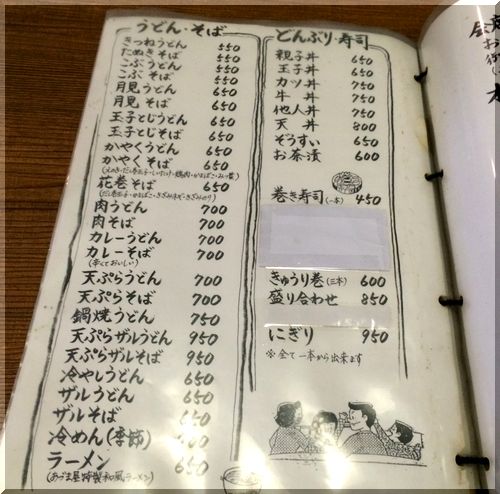 うどん・そば
きつねうどん 550
たぬきそば 550
こぶうどん 550
こぶそば 550
月見うどん 650
月見そば 650
玉子とじうどん 650
玉子とじそば 650
かやくうどん 650
かやくそば 650
花巻そば 650
肉うどん 700
肉そば 700
カレーうどん 700
カレーそば 700
(辛くておいしい)
天ぷらうどん 700
天ぷらそば 700
鍋焼うどん 750
天ぷらザルうどん 950
天ぷらザルそば 950
冷やしうどん 650
ザルうどん 650
ザルそば 650
冷めん(季節)
ラーメン 650
(あづま屋特製和風ラーメン)
どんぶり・寿司
親子丼 650
玉子丼 650
カツ丼 750
牛丼 750
他人丼 750
天丼 800
ぞうすい 650
お茶漬 600
巻き寿司(一本) 450
きゅうり巻(三本) 600
盛り合わせ 850
にぎり 950
※全て一本から出来ます